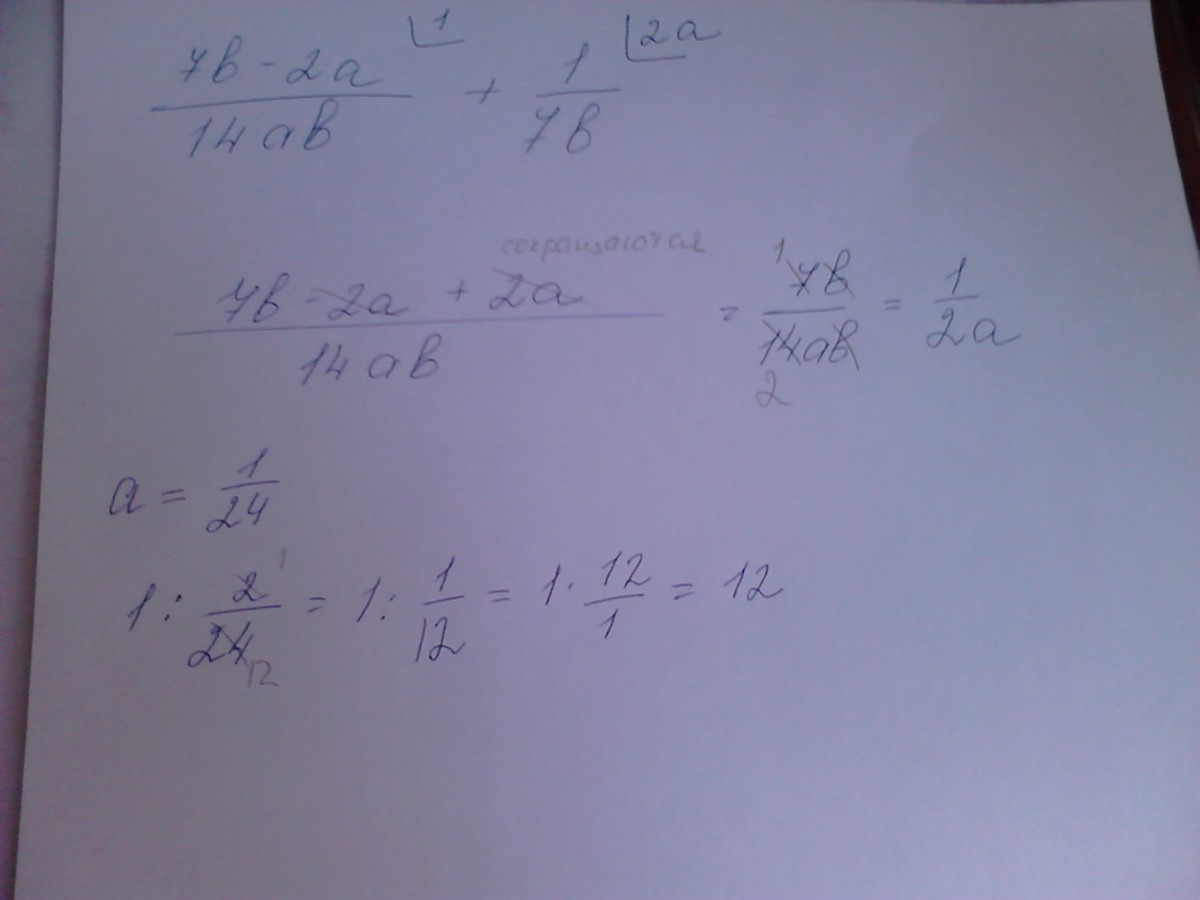 7b - 2a / 14ab ⌊1 + 1 / 7b ⌊2a
сокращаются
7b - 2a + 2a / 14ab = 1 7b / 14ab 2 = 1 / 2a
a = 1 / 24
1 : 2 1 / 24 12 = 1 : 1 / 12 = 1 · 12 / 1 = 12